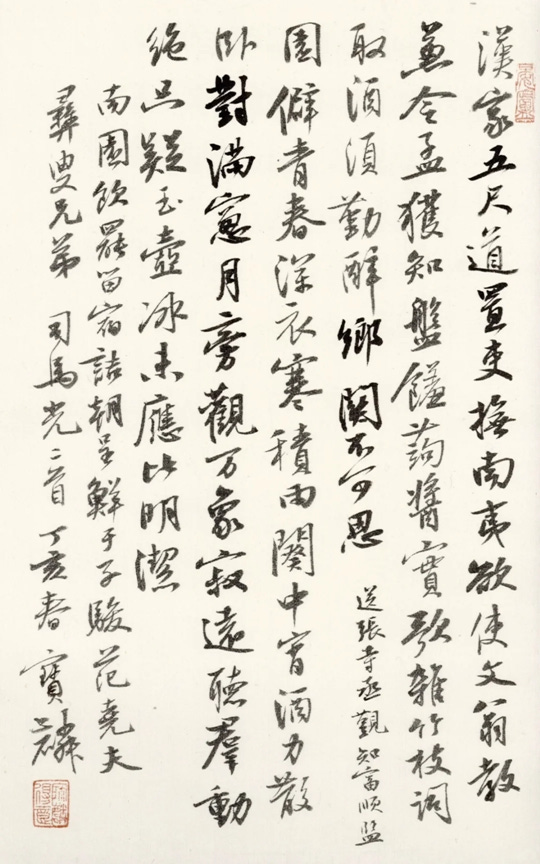 漢家五尺道置吏撫南夷欲使文翁教
兼令孟獲知盤饈蒟醬實歌雜竹枝詞
取酒須勤醉鄉關不可思 送張寺丞觀知富順監
園僻青春深衣寒積雨闋中宵酒力散
卧對滿窻月旁觀万象寂遠聽羣動
絶只疑玉壺冰未應比明潔
南園飲罷留宿詰朝呈鮮于子駿范堯夫
彝叟兄弟 司馬光二首 丁亥春 寶麟